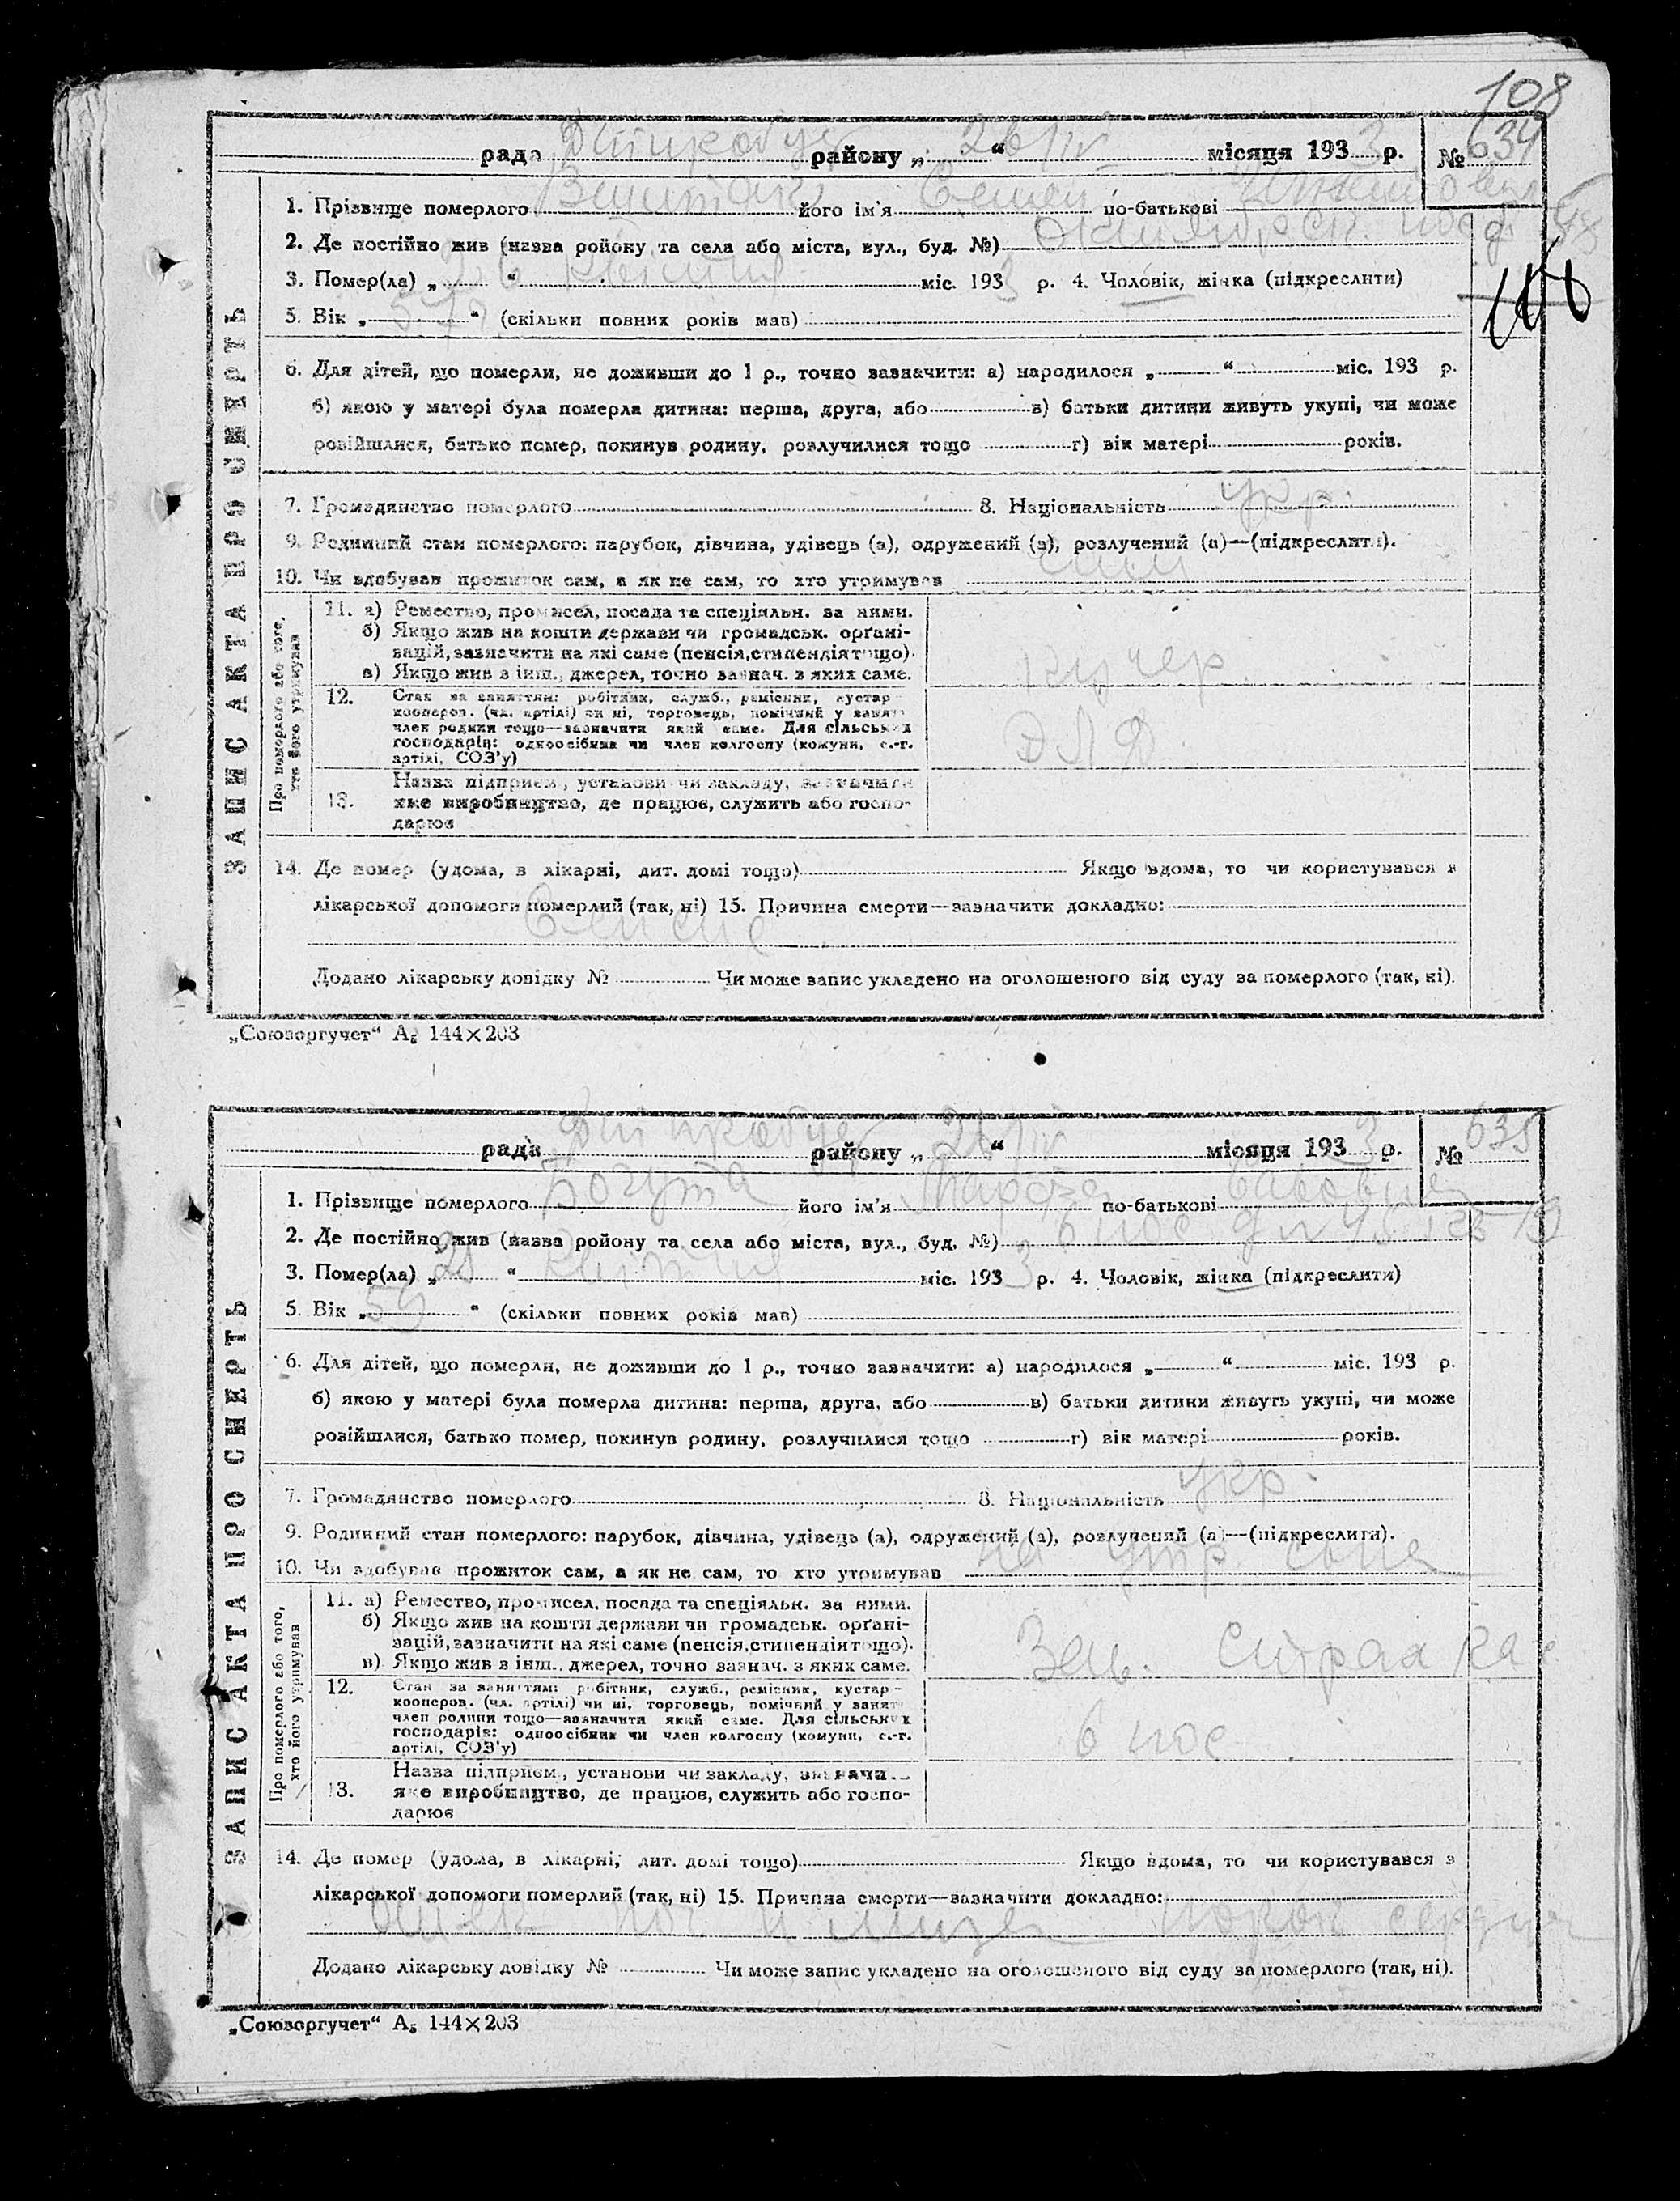 108
рада району „ 26/IV “ місяця 1933 р. № 634
1. Прізвище померлого його ім'я Семен по-батькові
2. Де постійно жив (назва ройону та села або міста, вул., буд. №)
3. Помер(ла) „ “ міс. 193 р. 4. Чоловік, жінка (підкреслити)
5. Вік „ “ (скільки повних років мав)
6. Для дітей, що померли, не доживши до 1 р., точно зазначити: а) народилося „ “ міс. 193 р.
б) якою у матері була померла дитина: перша, друга, або в) батьки дитини живуть укупі, чи може
розійшлися, батько помер, покинув родину, розлучилися тощо г) вік матері років.
7. Громадянство померлого 8. Національність укр.
9. Родинний стан померлого: парубок, дівчина, удівець (а), одружений (а), розлучений (а)—(підкреслити).
10. Чи здобував прожиток сам, а як не сам, то хто утримував
ЗАПИС АКТА ПРО СМЕРТЬ
Про померлого або того, хто його утримував
11. а) Ремество, промисел, посада та спеціяльн. за ними.
б) Якщо жив на кошти держави чи громадськ. органі-
зацій, зазначити на які саме (пенсія, стипендія тощо).
в) Якщо жив з інш. джерел, точно зазнач. з яких саме.
кучер
12. Стан за заняттям: робітник, служб., ремісник, кустар
кооперов. (чл. артілі) чи ні, торговець, помічний у занят.
член родини тощо—зазначити який саме. Для сільських
господарів: одноосібник чи член колгоспу (комуни, с.-г.
артілі, СОЗ'у)
13. Назва підприєм., установи чи закладу, зазначити
яке виробництво, де працює, служить або госпо-
дарює
14. Де помер (удома, в лікарні, дит. домі тощо) Якщо вдома, то чи користувався з
лікарської допомоги померлий (так, ні) 15. Причина смерти—зазначити докладно:
Додано лікарську довідку № Чи може запис укладено на оголошеного від суду за померлого (так, ні).
„Союзоргучет“ А₅ 144×203
рада району „ 26/IV “ місяця 1933 р. № 635
1. Прізвище померлого його ім'я по-батькові
2. Де постійно жив (назва ройону та села або міста, вул., буд. №)
3. Помер(ла) „ 25 “ квітня міс. 1933 р. 4. Чоловік, жінка (підкреслити)
5. Вік „ 59 “ (скільки повних років мав)
6. Для дітей, що померли, не доживши до 1 р., точно зазначити: а) народилося „ “ міс. 193 р.
б) якою у матері була померла дитина: перша, друга, або в) батьки дитини живуть укупі, чи може
розійшлися, батько помер, покинув родину, розлучилися тощо г) вік матері років.
7. Громадянство померлого 8. Національність укр.
9. Родинний стан померлого: парубок, дівчина, удівець (а), одружений (а), розлучений (а)—(підкреслити).
10. Чи здобував прожиток сам, а як не сам, то хто утримував на утр. сына
ЗАПИС АКТА ПРО СМЕРТЬ
Про померлого або того, хто його утримував
11. а) Ремество, промисел, посада та спеціяльн. за ними.
б) Якщо жив на кошти держави чи громадськ. органі-
зацій, зазначити на які саме (пенсія, стипендія тощо).
в) Якщо жив з інш. джерел, точно зазнач. з яких саме.
Зав.
12. Стан за заняттям: робітник, служб., ремісник, кустар-
кооперов. (чл. артілі) чи ні, торговець, помічний у занят.
член родини тощо—зазначити який саме. Для сільських
господарів: одноосібник чи член колгоспу (комуни, с.-г.
артілі, СОЗ'у)
6 пос
13. Назва підприєм., установи чи закладу, зазначи
яке виробництво, де працює, служить або госпо-
дарює
14. Де помер (удома, в лікарні, дит. домі тощо) Якщо вдома, то чи користувався з
лікарської допомоги померлий (так, ні) 15. Причина смерти—зазначити докладно:
порок сердца
Додано лікарську довідку № Чи може запис укладено на оголошеного від суду за померлого (так, ні).
„Союзоргучет“ А₅ 144×203